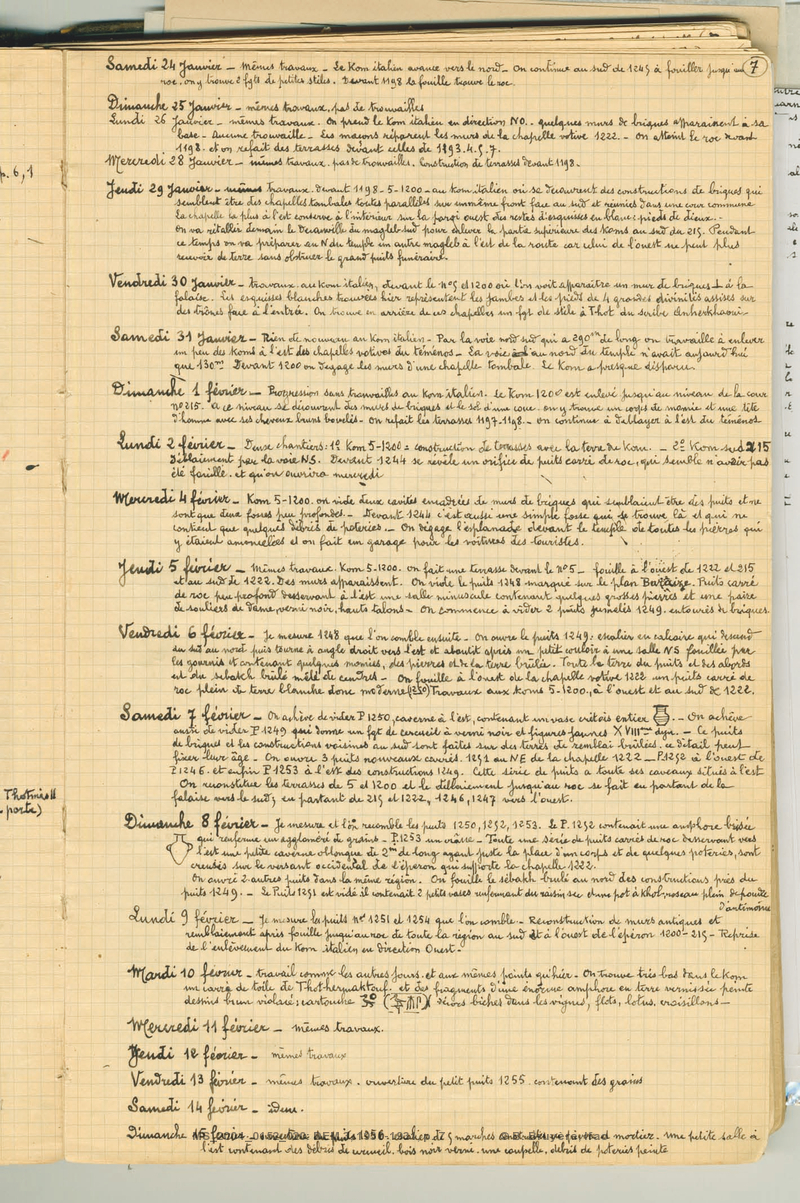 7
Samedi 24 Janvier – Mêmes travaux – Le Kom italien avance vers le nord – On continue au sud de 1245 à fouiller jusqu'au
roc. on y trouve 2 fgts de petites stèles. Devant 1198 la fouille trouve le roc.
Dimanche 25 Janvier – mêmes travaux, pas de trouvailles
Lundi 26 Janvier – mêmes travaux. On prend le Kom italien en direction NO. – quelques murs de briques apparaissent à sa
base – Aucune trouvaille – Les maçons réparent les murs de la chapelle votive 1222. – On atteint le roc devant
1198. et on refait des terrasses devant celles de 1893.4.5.7.
Mercredi 28 Janvier – mêmes travaux. pas de trouvailles. Construction de terrasses devant 1198 –
Jeudi 29 Janvier – mêmes travaux. devant 1198-5-1200 – au Kom italien où se découvrent des constructions de briques qui
semblent être des chapelles tombales toutes parallèles sur un même front face au sud et réunies dans une cour commune
La chapelle la plus à l'est conserve à l'intérieur sur la paroi ouest des restes d'esquisses en blanc: pieds de dieux. –
On va rétablir demain le Decauville au magleb sud pour enlever la partie supérieure des Koms au sud du 215. Pendant
ce temps on va préparer au N du temple un autre magleb à l'est de la route car celui de l'ouest ne peut plus
recevoir de terre sans obstruer le grand puits funéraire.
Vendredi 30 Janvier – travaux. au Kom italien, devant le n°5 et 1200 où l'on voit apparaître un mur de briques ⊥ à la
falaise. Les esquisses blanches trouvées hier représentent les jambes et les pieds de 4 grandes divinités assises sur
des trônes face à l'entrée. On trouve en arrière de ces chapelles un fgt de stèle à Thot du scribe Anherkhaoui
Samedi 31 Janvier – Rien de nouveau au Kom italien – Par la voie nord sud qui a 290m de long on travaille à enlever
un peu des Koms à l'est des chapelles votives du téménos – La voie au nord du temple n'avait aujourd'hui
que 130m Devant 1200 on dégage les murs d'une chapelle tombale. Le Kom a presque disparu.
Dimanche 1 février – Progression sans trouvailles au Kom italien. Le Kom 1200 est enlevé jusqu'au niveau de la cour
n°215. A ce niveau se découvrent des murs de briques et le sol d'une cour. on y trouve un corps de momie et une tête
d'homme avec ses cheveux bruns bouclés – On refait les terrasses 1197-1198. – On continue à déblayer à l'est du téménos
Lundi 2 février – Deux chantiers: 1° Kom 5-1200 = construction de terrasses avec la terre du Kom. – 2° Kom sud 215
déblaiement par la voie NS. Devant 1244 se révèle un orifice de puits carré de roc, qui semble n'avoir pas
été fouillé. et qu'on ouvrira mercredi
Mercredi 4 février – Kom 5-1200. on vide deux cavités encadrées de murs de briques qui semblaient être des puits et ne
sont que deux fosses peu profondes – Devant 1244 c'est aussi une simple fosse qui se trouve là et qui ne
contient que quelques débris de poteries. – On dégage l'esplanade devant le temple de toutes les pierres qui
y étaient amoncelées et on fait un garage pour les voitures des touristes.
Jeudi 5 février – Mêmes travaux. Kom 5-1200. on fait une terrasse devant le N°5 – fouille à l'ouest de 1222 et 215
et au sud de 1222. Des murs apparaissent. On vide le puits 1248 marqué sur le plan Baraize. Puits carré
de roc peu profond desservant à l'est une salle minuscule contenant quelques grosses pierres et une paire
de souliers de dame, verni noir, hauts talons – On commence à vider 2 puits jumelés 1249. entourés de briques.
Vendredi 6 février – Je mesure 1248 que l'on comble ensuite – On ouvre le puits 1249: escalier en calcaire qui descend
du sud au nord puis tourne à angle droit vers l'est et aboutit après un petit couloir à une salle NS fouillée par
les gournis et contenant quelques momies, des pierres et de la terre brûlée. Toute la terre du puits et des abords
est du sebakh brûlé mêlé de cendres – On fouille à l'ouest de la chapelle votive 1222 un puits carré de
roc plein de terre blanche donc moderne (1250) Travaux aux Koms 5-1200, à l'ouest et au sud de 1222.
Samedi 7 février – On achève de vider P1250, caverne à l'est, contenant un vase crétois entier – On achève
aussi de vider P1249 qui donne un fgt de cercueil à verni noir et figures jaunes XVIIIme dyn. – Ce puits
de briques et les constructions voisines au sud sont faites sur des terres de remblai brûlées. ce détail peut
fixer leur âge – On ouvre 3 puits nouveaux carrés. 1251 au NE de la chapelle 1222 – P.1252 à l'ouest de
P1246. et enfin P1253 à l'est des constructions 1249. Cette série de puits a toute ses caveaux situés à l'est
On reconstitue les terrasses de 5 et 1200 et le déblaiement jusqu'au roc se fait en partant de la
falaise vers le sud, en partant de 215 et 1222, 1246, 1247 vers l'ouest.
Dimanche 8 février – Je mesure et l'on recomble les puits 1250, 1252, 1253. Le P. 1252 contenait une amphore brisée
qui renferme un aggloméré de grains – P.1253 un crâne – Toute une série de puits carrés de roc desservant vers
l'est une petite caverne oblongue de 2m de long ayant juste la place d'un corps et de quelques poteries, sont
creusés sur le versant occidental de l'éperon qui supporte la chapelle 1222.
On ouvre 2 autres puits dans la même région. On fouille le sébakh brûlé au nord des constructions près du
puits 1249. – Le Puits 1251 est vidé il contenait 2 petits vases renfermant du raisin sec et une pot à Khol, roseau plein de poudre
d'antimoine
Lundi 9 février – Je mesure les puits nos 1251 et 1254 que l'on comble – Reconstruction de murs antiques et
remblaiement après fouille jusqu'au roc de toute la région au sud et à l'ouest de l'éperon 1200-215 – Reprise
de l'enlèvement du Kom italien en direction Ouest –
Mardi 10 février – travail comme les autres jours et aux mêmes points qu'hier – On trouve très bas dans le Kom
un carré de toile de et des fragments d'une énorme amphore en terre vernissée peinte
dessins brun violacé: cartouche décors biches dans les vignes, flots, lotus, croisillons –
Mercredi 11 février – mêmes travaux.
Jeudi 12 février – mêmes travaux
Vendredi 13 février – mêmes travaux. ouverture du petit puits 1255. contenant des grains
Samedi 14 février – idem.
Dimanche 15 février – du puits 1256 – marches mortier. une petite salle à
l'est contenant des débris de cercueil. bois noir verni. une coupelle, débris de poteries peinte
p. 6, 1
Thotmès II
porte)